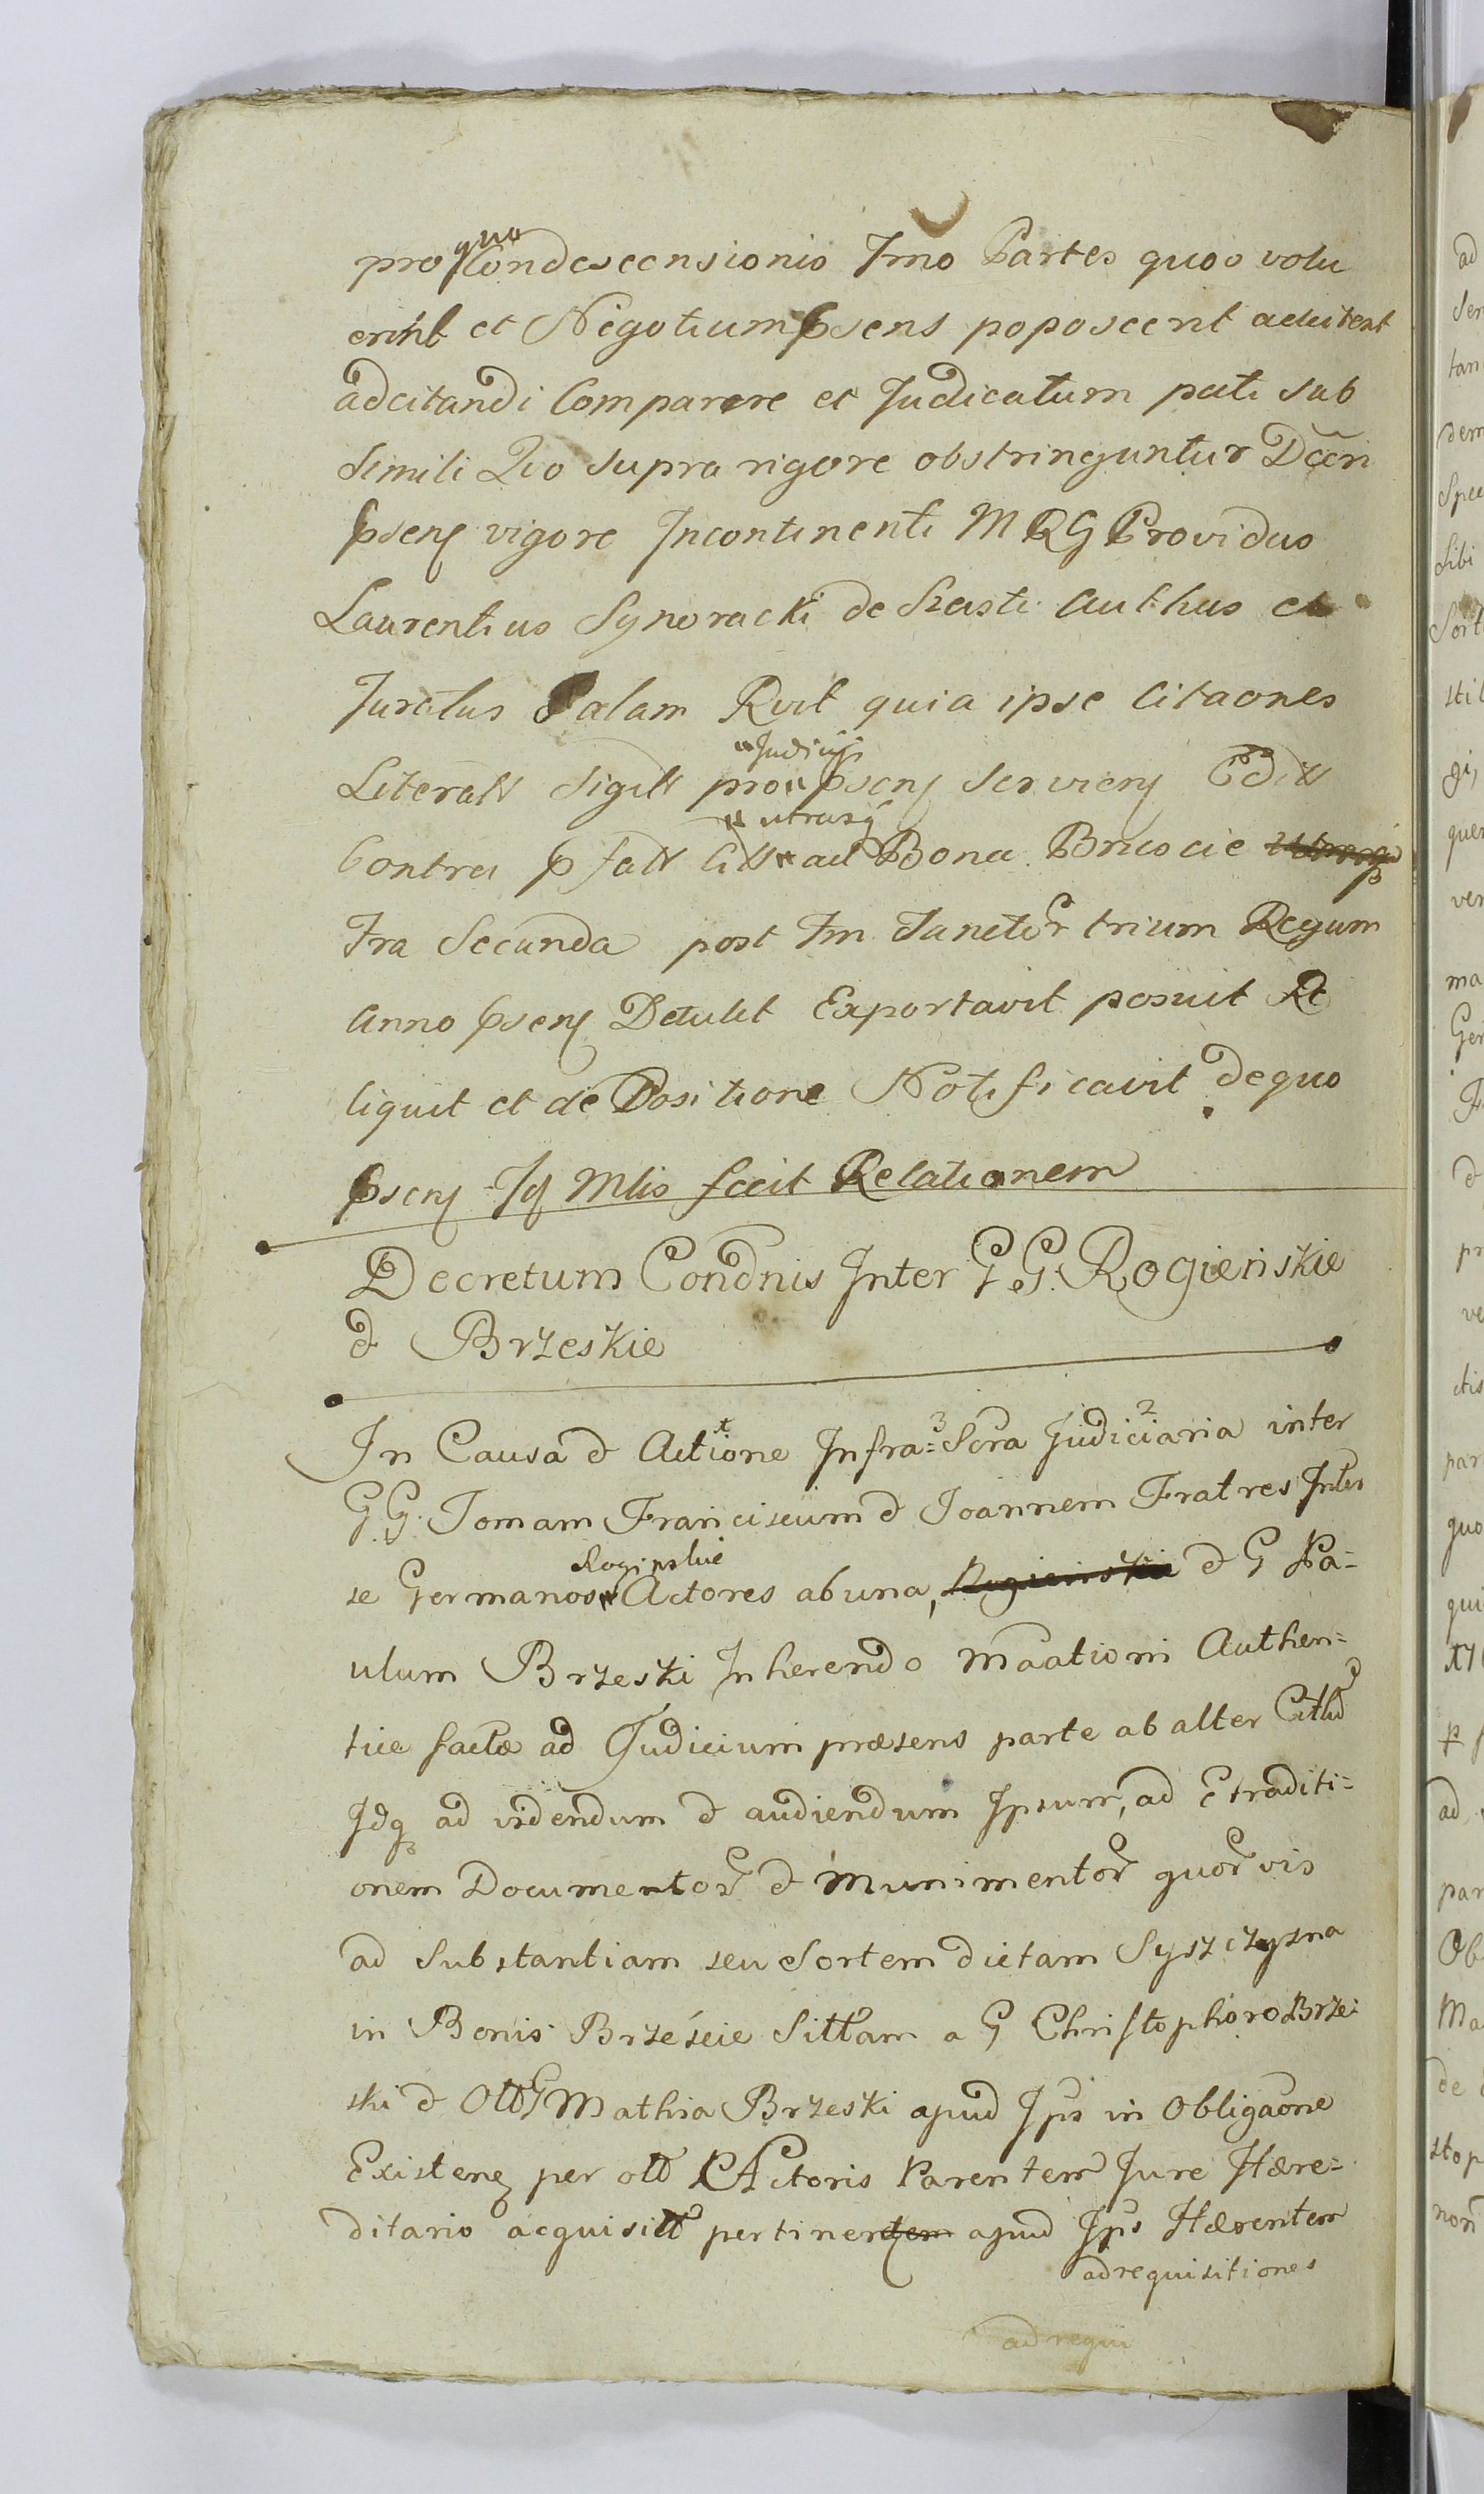 pro quo Condescensionis Tmo Partes quos volu
erint et Negotium Psens poposcerit adcitent
adcitandi Comparere et Judicatum pati sub
Simili Qvo supra rigore obstringuntur Dcri
Psenz vigore Incontinenti M R G Providus
Laurentius Synoracki de Szasti authus et
Juratus Palam Rvit quia ipse Citaones
Literall Sigill pro Judicii psenz servienz Edill
Contra P fatt Citt utrasq ad Bona Brzoscie
Fra Secunda post Fm Sanctor trium Regum
Anno Psenz Detulit Exportavit posuit Re
liquit et de Positione Notificavit de quo
Psenz Mlis fecit Relationem
Decretum Condnis Inter G. G. Rogieńskie
& Brzeskie
In Causa & Actione Infra= Scra Judiciaria inter
G. G. Tomam Franciscum & Joannem Fratres Inter
se Germanos Roginskie Actores ab una, Rogienskie & G Pa=
ulum Brzeski Inherendo Maationi Authen=
tice factæ ad Judicium præsens parte ab alter Cittu
Idq ad videndum & audiendum Ipsum, ad Etraditi=
onem Documentor & Munimentor quor vis
ad Substantiam seu Sortem dictam Syszczyzna
in Bonis Brzeście Sittam a G Christophoro Brze=
ski & Olt G Mathia Brzeski apud Ips in Obligaone
Existenz per olt Actoris Parentem Jure Hære=
ditario acquisitt pertinentem apud Ips Hærentem
ad requisitiones
ad requi